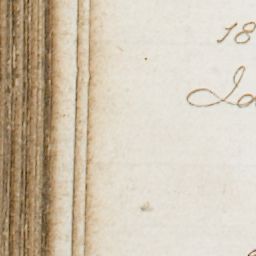 18
Ja